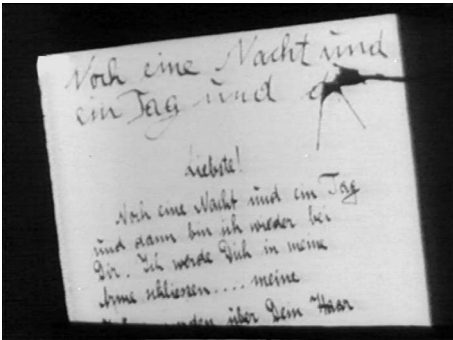 Noch eine Nacht und
ein Tag und
Liebste!
Noch eine Nacht und ein Tag
und dann bin ich wieder bei
Dir. Ich werde Dich in meine
Arme schliessen.... meine
über Dein Haar